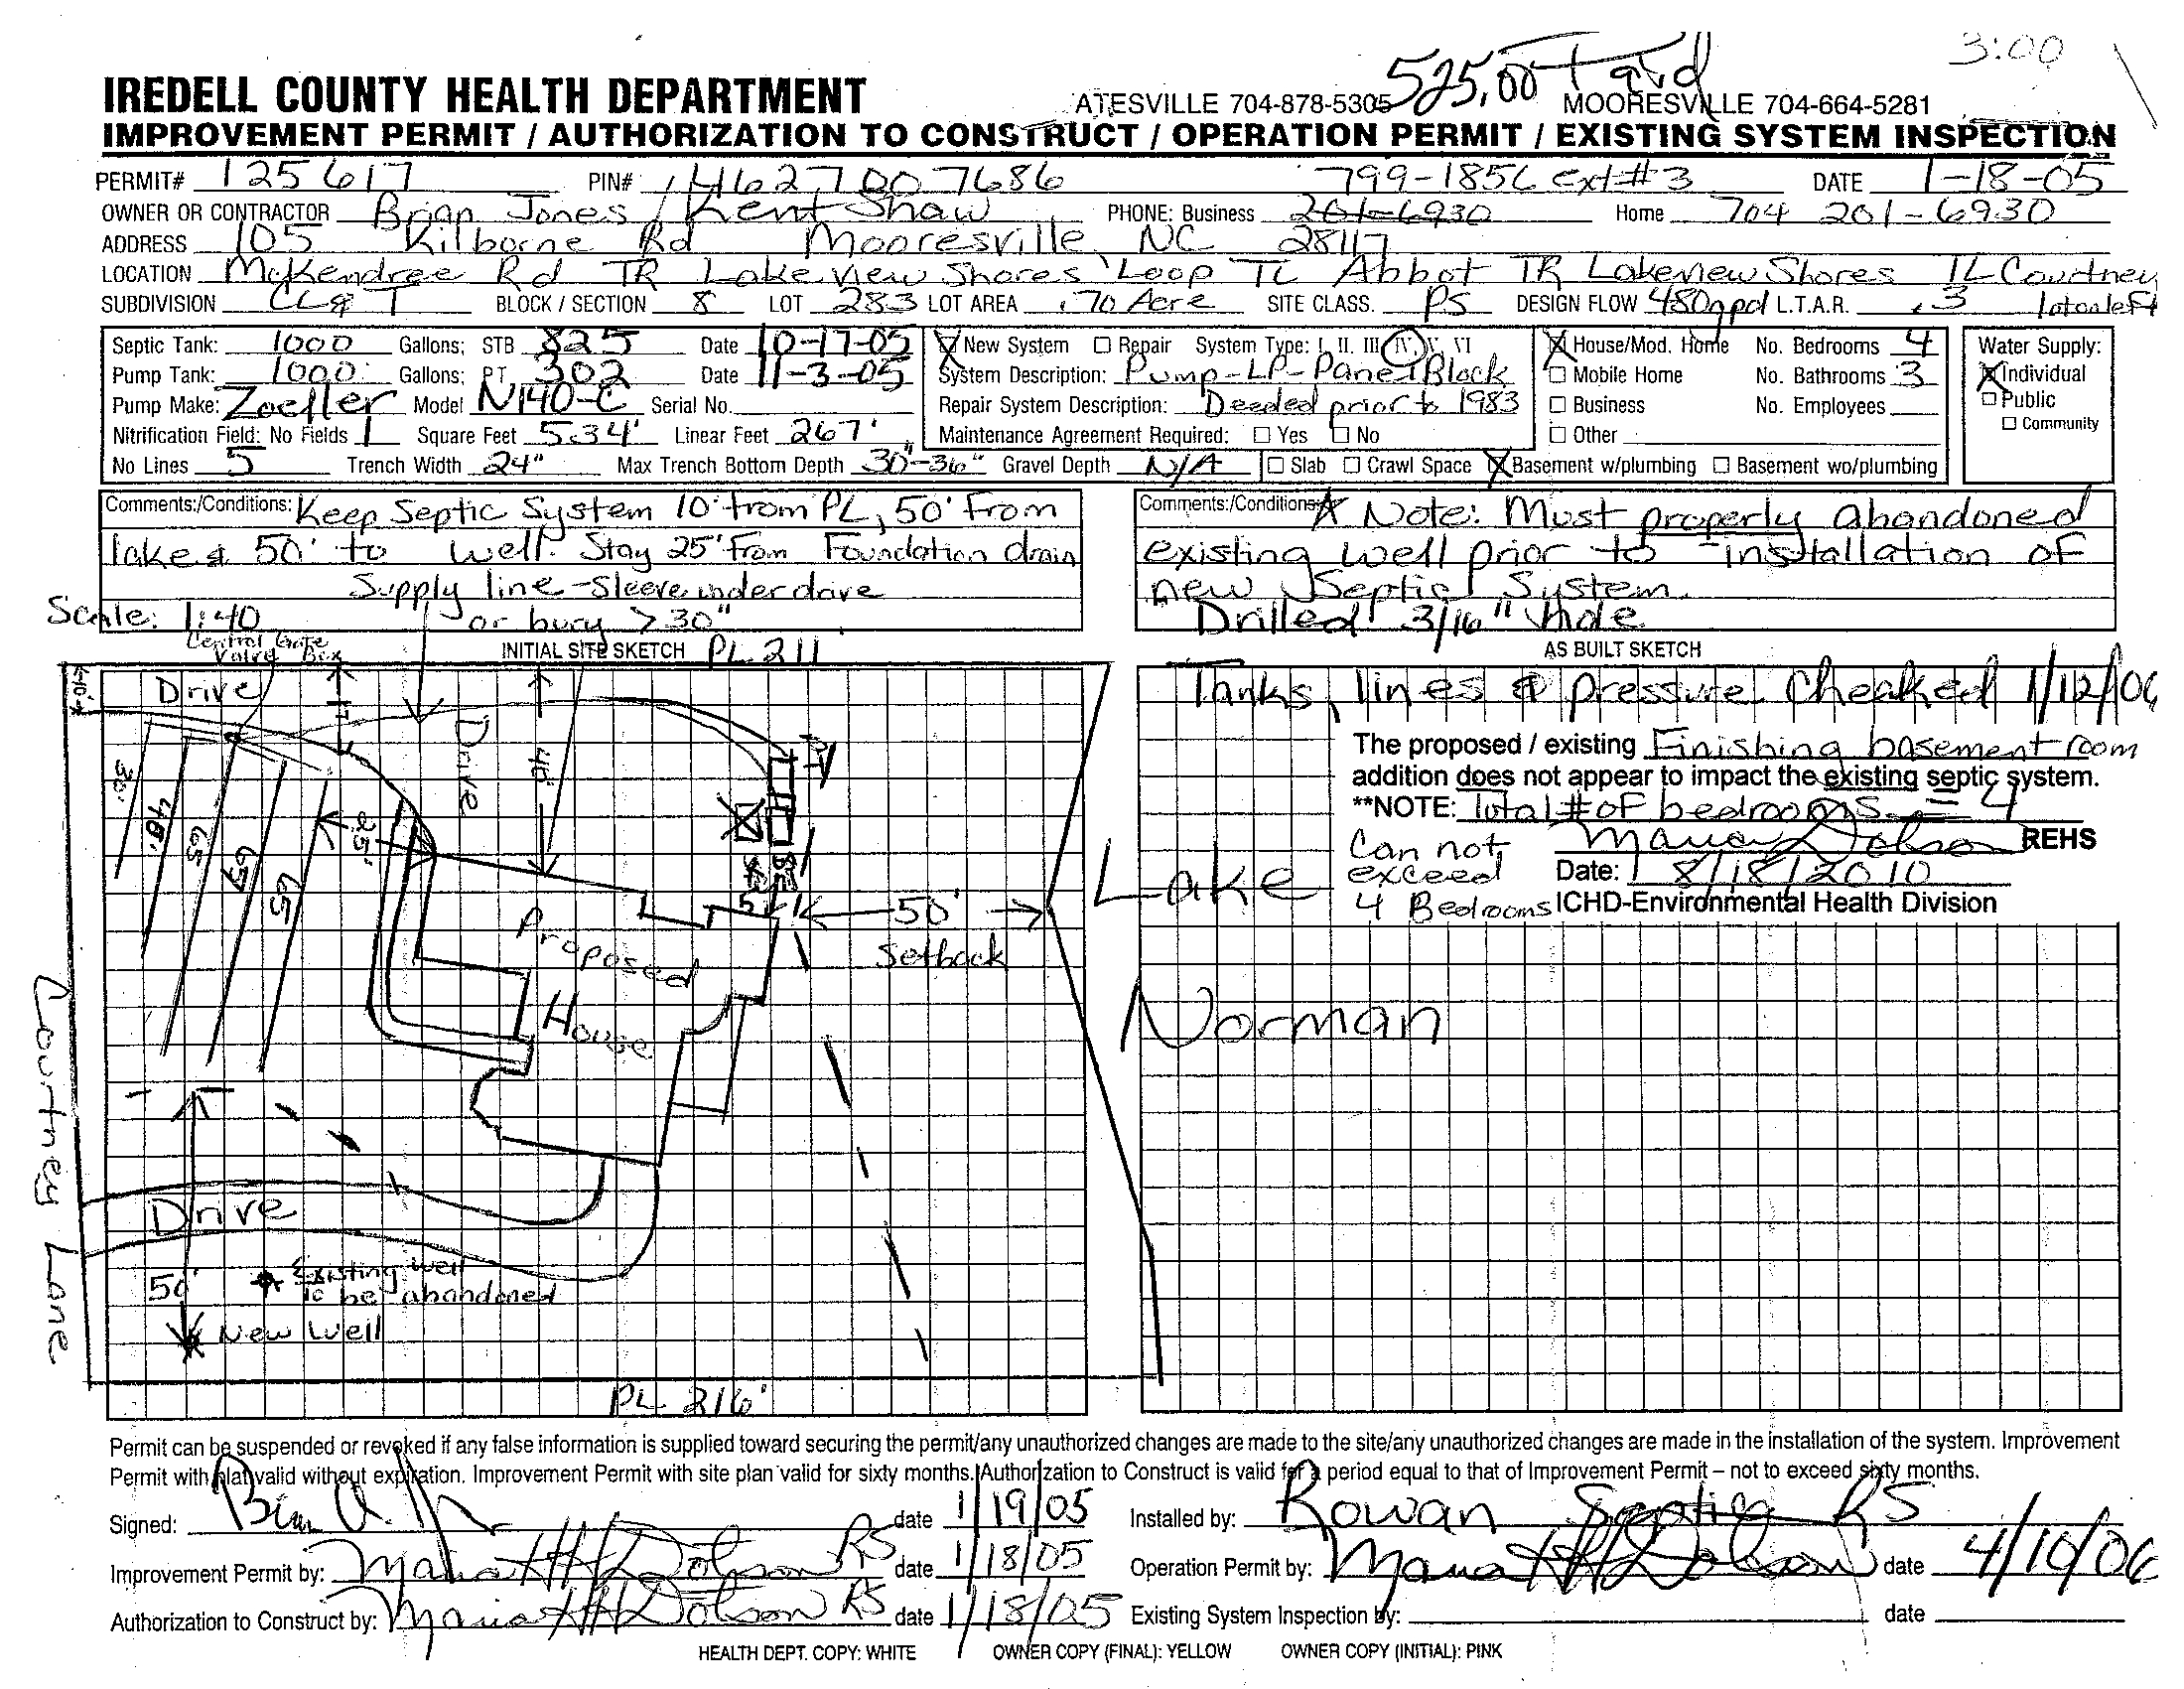 3:00
525.00 Paid
IREDELL COUNTY HEALTH DEPARTMENT ATESVILLE 704-878-5305 MOORESVILLE 704-664-5281
IMPROVEMENT PERMIT / AUTHORIZATION TO CONSTRUCT / OPERATION PERMIT / EXISTING SYSTEM INSPECTION
PERMIT# 125617 PIN# 4627007686 799-1856 ext#3 DATE 1-18-05
OWNER OR CONTRACTOR Brian Jones / Kent Shaw PHONE: Business 201-6930 Home 704 201-6930
ADDRESS 105 Kilborne Rd Mooresville NC 28117
LOCATION McKendree Rd TR Lake View Shores Loop TL Abbot TR Lakeview Shores TL Courtney
SUBDIVISION BLOCK / SECTION 8 LOT 283 LOT AREA .70 Acre SITE CLASS. PS DESIGN FLOW 480gpd L.T.A.R. .3 lot on left
Septic Tank: 1000 Gallons; STB 825 Date 10-17-05 New System Repair System Type: I, II, III, IV, V, VI House/Mod. Home No. Bedrooms 4 Water Supply:
Pump Tank: 1000 Gallons; PT 302 Date 11-3-05 System Description: Pump-LP-Panel Block Mobile Home No. Bathrooms 3 Individual
Pump Make: Zoeller Model N140-C Serial No. Repair System Description: Deeded prior to 1983 Business No. Employees Public
Nitrification Field: No Fields 1 Square Feet 534' Linear Feet 267' Maintenance Agreement Required: Yes No Other Community
No Lines 5 Trench Width 24" Max Trench Bottom Depth 30"-36" Gravel Depth N/A Slab Crawl Space Basement w/plumbing Basement wo/plumbing
Comments:/Conditions: Keep Septic System 10' from PL, 50' From
lake & 50' to well. Stay 25' From Foundation drain
Supply line - Sleeve under drive
or bury > 30"
Comments:/Conditions: Note: Must properly abandoned
existing well prior to installation of
new Septic System.
Drilled 3/16" Hole
Scale: 1:40
Central Gate
Valve Box
INITIAL SITE SKETCH PL 211
AS BUILT SKETCH
Drive
Drive
40'
25'
30'
48'
65
67
65
PT
5'
50'
Setback
Proposed
House
Lake
Norman
Courtney Lane
Drive
50'
Existing well
to be abandoned
New Well
PL 216'
Tanks, lines & pressure Cheaked 1/12/06
The proposed / existing Finishing basement room
addition does not appear to impact the existing septic system.
**NOTE: Total # of bedrooms = 4
Can not
exceed
4 Bedrooms
Maria Dobson REHS
Date: 8/18/2010
ICHD-Environmental Health Division
Permit can be suspended or revoked if any false information is supplied toward securing the permit/any unauthorized changes are made to the site/any unauthorized changes are made in the installation of the system. Improvement
Permit with plat valid without expiration. Improvement Permit with site plan valid for sixty months. Authorization to Construct is valid for a period equal to that of Improvement Permit – not to exceed sixty months.
Signed: date 1/19/05 Installed by: Rowan Septic RS
Improvement Permit by: Maria H Dobson RS date 1/18/05 Operation Permit by: Maria H Dobson date 4/10/06
Authorization to Construct by: Maria H Dobson RS date 1/18/05 Existing System Inspection by: date
HEALTH DEPT. COPY: WHITE OWNER COPY (FINAL): YELLOW OWNER COPY (INITIAL): PINK